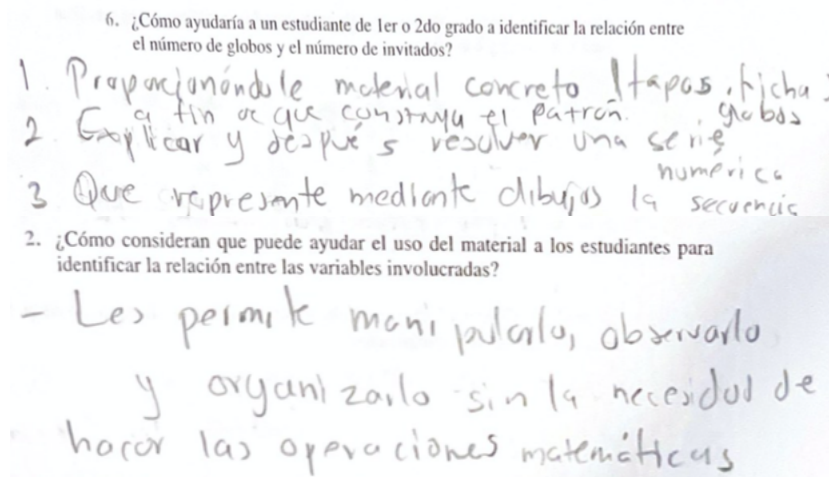 6. ¿Cómo ayudaría a un estudiante de 1er o 2do grado a identificar la relación entre
el número de globos y el número de invitados?
1. Proporcionóndole material concreto tapas, ficha
globos
a fin de que construya el patrón.
2 Explicar y después resolver una serie
numérica
3 Que represente mediante dibujos la secuencia
2. ¿Cómo consideran que puede ayudar el uso del material a los estudiantes para
identificar la relación entre las variables involucradas?
- Les permite manipularlo, observarlo
y organizarlo sin la necesidad de
hacer las operaciones matemáticas